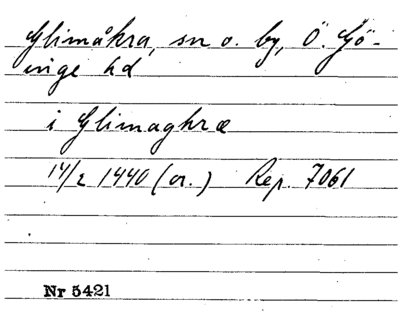 Glimåkra, sn o. by, Ö. Gö-
inge hd
i Glimaghræ
14/2 1440 (or.) Rep. 7061
Nr 5421